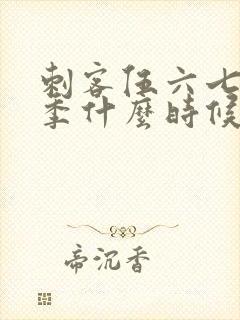 刺客伍六七
季什麼時候
帝沉香